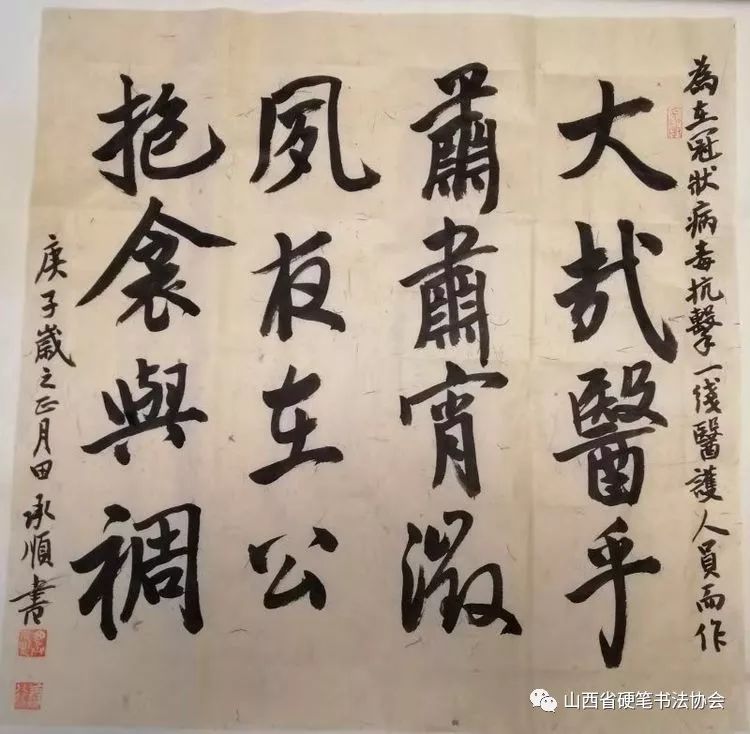 為在冠狀病毒抗擊一线醫護人員而作
大哉醫乎
肅肅宵徵
夙夜在公
抱衾與裯
庚子歲之正月田承順書
山西省硬笔书法协会